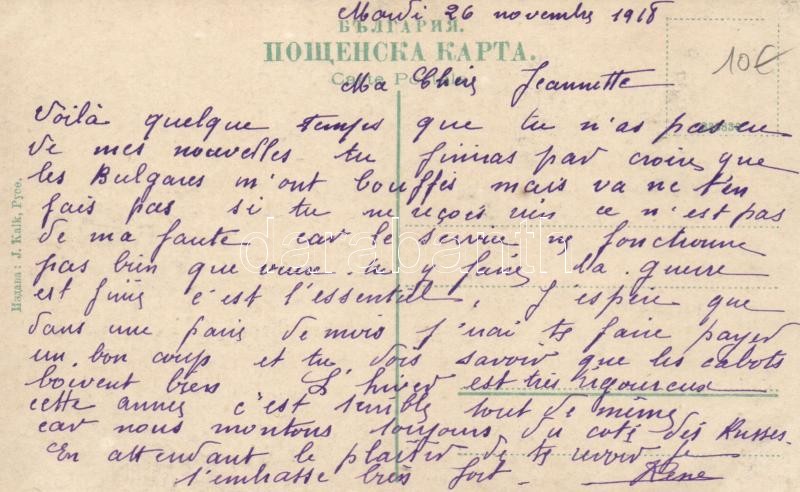 Mardi 26 novembre 1918
БЪЛГАРИЯ.
ПОЩЕНСКА КАРТА.
Carte Postale
10€
Ma Chère Jeannette
Voilà quelque temps que tu n'as pas eu
de mes nouvelles tu finiras par croire que
les Bulgares m'ont bouffés mais va ne t'en
fais pas si tu ne reçois rien ce n'est pas
de ma faute car le service ne fonctionne
pas bien que veux tu y faire la guerre
est finie c'est l'essentiel, J'espère que
dans une paire de mois j'irai te faire payer
un bon coup et tu dois savoir que les cabots
boivent bien L'hiver est très rigoureux
cette année c'est terrible tout de même
car nous montons toujours du coté des Russes.
En attendant le plaisir de te revoir je
t'embrasse bien fort René
Издава: J. Kalk, Русе.
darabanth